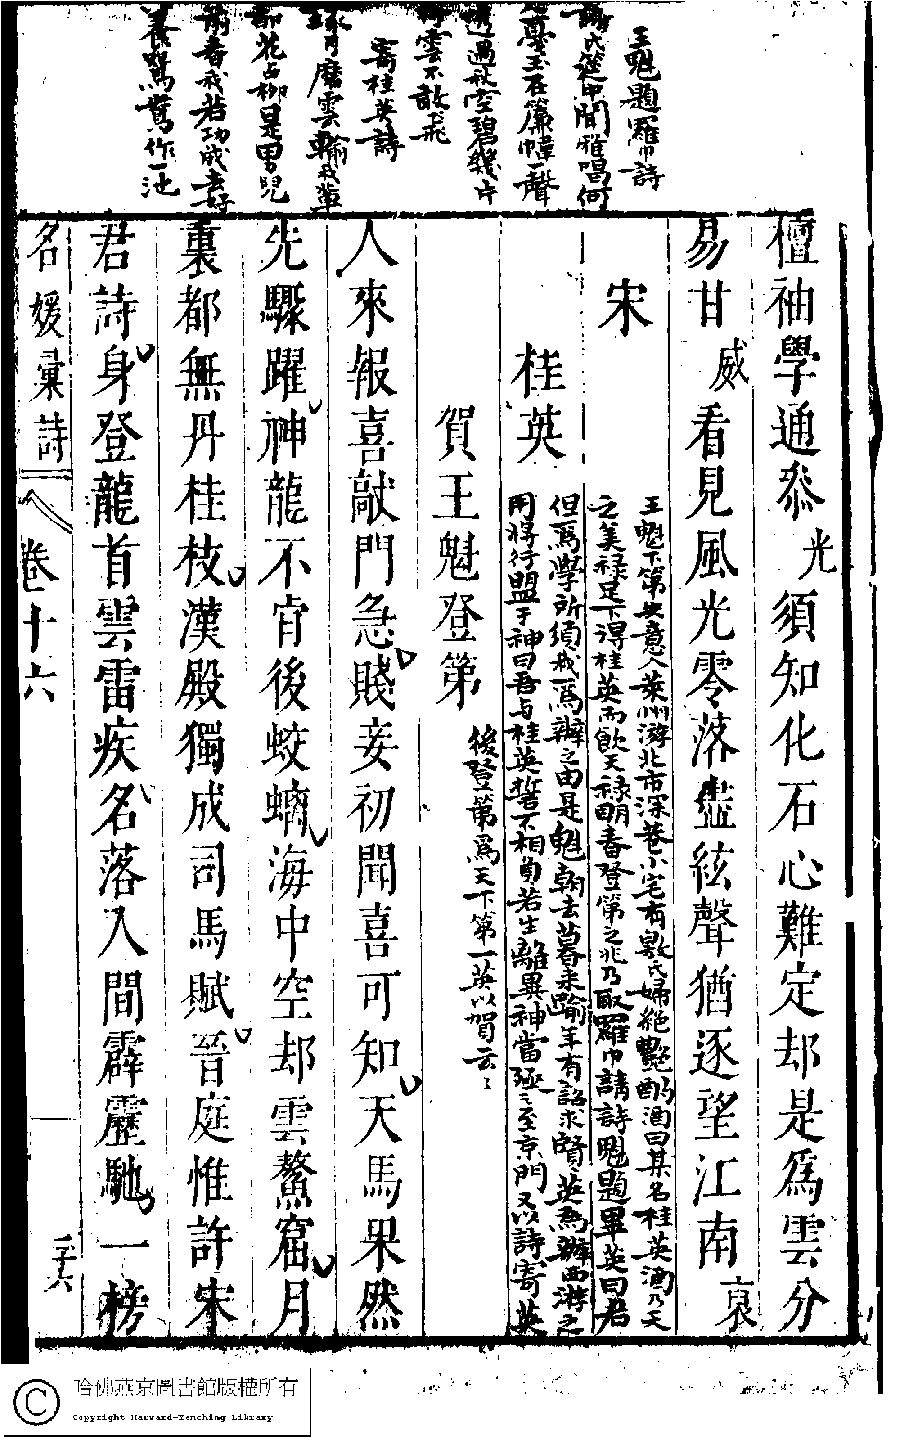 王魁題羅巾詩
謝氏筵中聞雅唱何
臺玉在簾幃一聲
透過秋空碧幾片
雲不敢飛
寄桂英詩
琢月磨雲輸我輩
都花占柳是男兒
前春我若功成去好
養鴛鴦作一池
檀袖學通參光須知化石心難定却是爲雲分
易甘威看見風光零落盡絃聲猶逐望江南哀
宋
桂英
王魁下第失意入萊州游北市深巷小宅有敫氏婦絶艷酌酒曰某名桂英酒乃天
之美祿足下得桂英而飲天祿明春登第之兆乃取羅巾請詩魁題畢英曰君
但爲學所須我一爲辦之由是魁朝去暮來踰年有詔求賢英爲辦西游之
用將行盟于神曰吾与桂英誓不相負若生離異神當殛之至京門又以詩寄英
賀王魁登第
後登第爲天下第一英以賀云云
人來報喜敲門急賤妾初聞喜可知天馬果然
先驟躍神龍不肯後蛟螭海中空却雲鰲窟月
裏都無丹桂枝漢殿獨成司馬賦晉庭惟許宋
君詩身登龍首雲雷疾名落人間霹靂馳一榜
名媛彙詩
卷十六
二十六
哈佛燕京圖書館版權所有
Copyright Harvard-Yenching Library